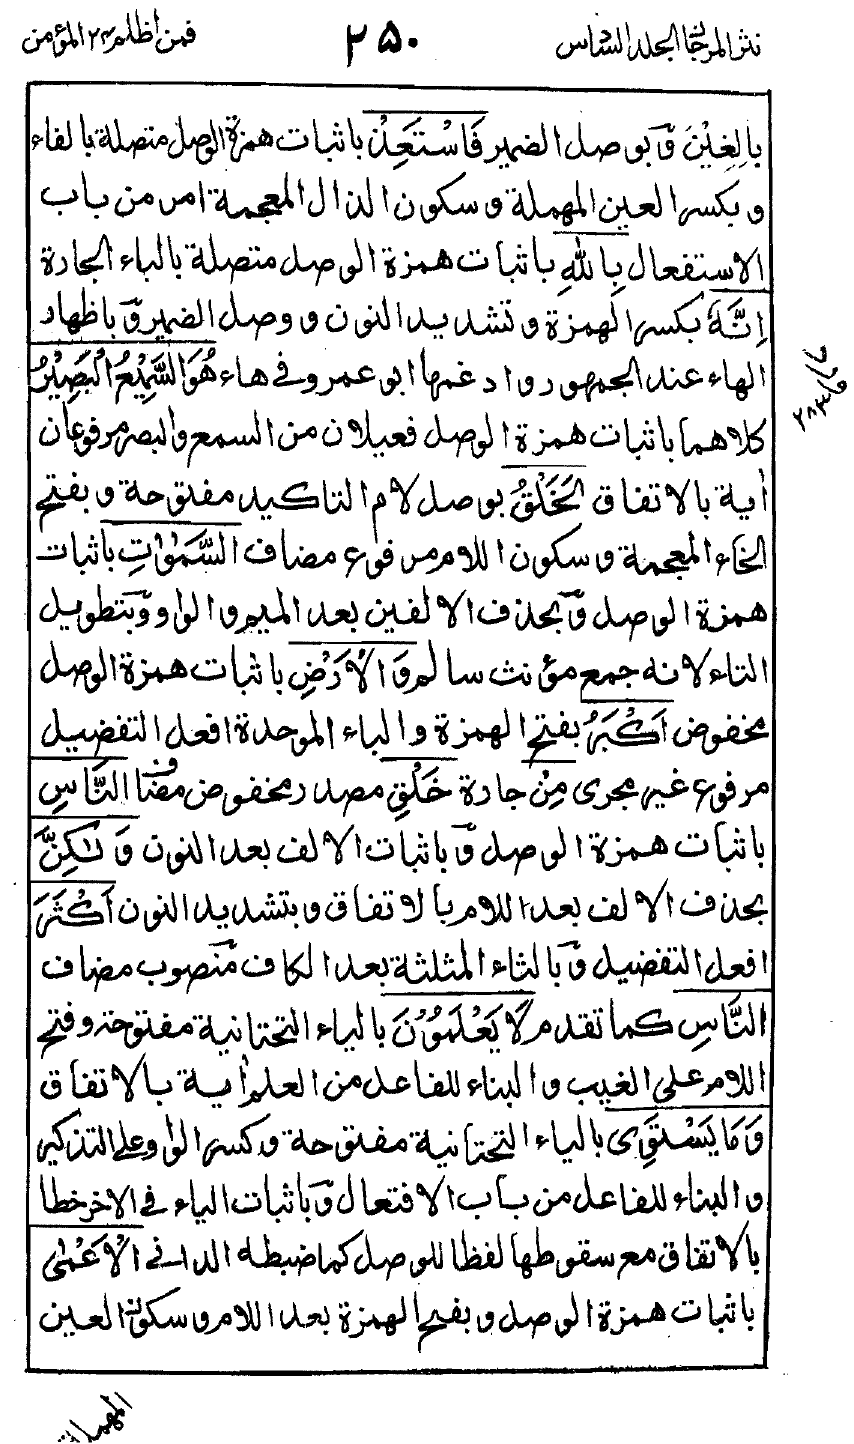 نثر المرجان المجلد السادس ٢٥٠ فمن اظلم ٢٤ المؤمن
بالِغِيْهِ وَبوصل الضمير فَاسْتَعِذْ باثبات همزة الوصل متصلة بالفاء
وبكسر العين المهملة وسكون الذال المعجمة امر من باب
الاستفعال بِاللهِ باثبات همزة الوصل متصلة بالباء الجارة
اِنَّهٗ بكسر الهمزة وتشديد النون ووصل الضمير وباظهار
الهاء عند الجمهور وادغمها ابو عمرو في هاء هُوَ السَّمِيْعُ الْبَصِيْرُ
كلاهما باثبات همزة الوصل فعيلان من السمع والبصر مرفوعان
اٰية بالاتفاق لَخَلْقُ بوصل لام التاكيد مفتوحة وبفتح
الخاء المعجمة وسكون اللام مرفوع مضاف السَّمٰوٰتِ باثبات
همزة الوصل وبحذف الالفين بعد الميم والواو وبتطويل
التاء لانه جمع مؤنث سالم وَالْاَرْضِ باثبات همزة الوصل
مخفوض اَكْبَرُ بفتح الهمزة والباء الموحدة افعل التفضيل
مرفوع غير مجرى مِنْ جارة خَلْقِ مصدر مخفوض مضاف النَّاسِ
باثبات همزة الوصل وباثبات الالف بعد النون وَلٰكِنَّ
بحذف الالف بعد اللام بالاتفاق وبتشديد النون اَكْثَرَ
افعل التفضيل وبالثاء المثلثة بعد الكاف منصوب مضاف
النَّاسِ كما تقدم لَا يَعْلَمُوْنَ بالياء التحتانية مفتوحة وفتح
اللام على الغيب والبناء للفاعل من العلم اٰية بالاتفاق
وَمَا يَسْتَوِى بالياء التحتانية مفتوحة وكسر الواو على التذكير
والبناء للفاعل من باب الافتعال وباثبات الياء في الاخر خطا
بالاتفاق مع سقوطها لفظا للوصل كما ضبطه الداني الْاَعْمٰى
باثبات همزة الوصل وبفتح الهمزة بعد اللام وسكون العين
المهملة